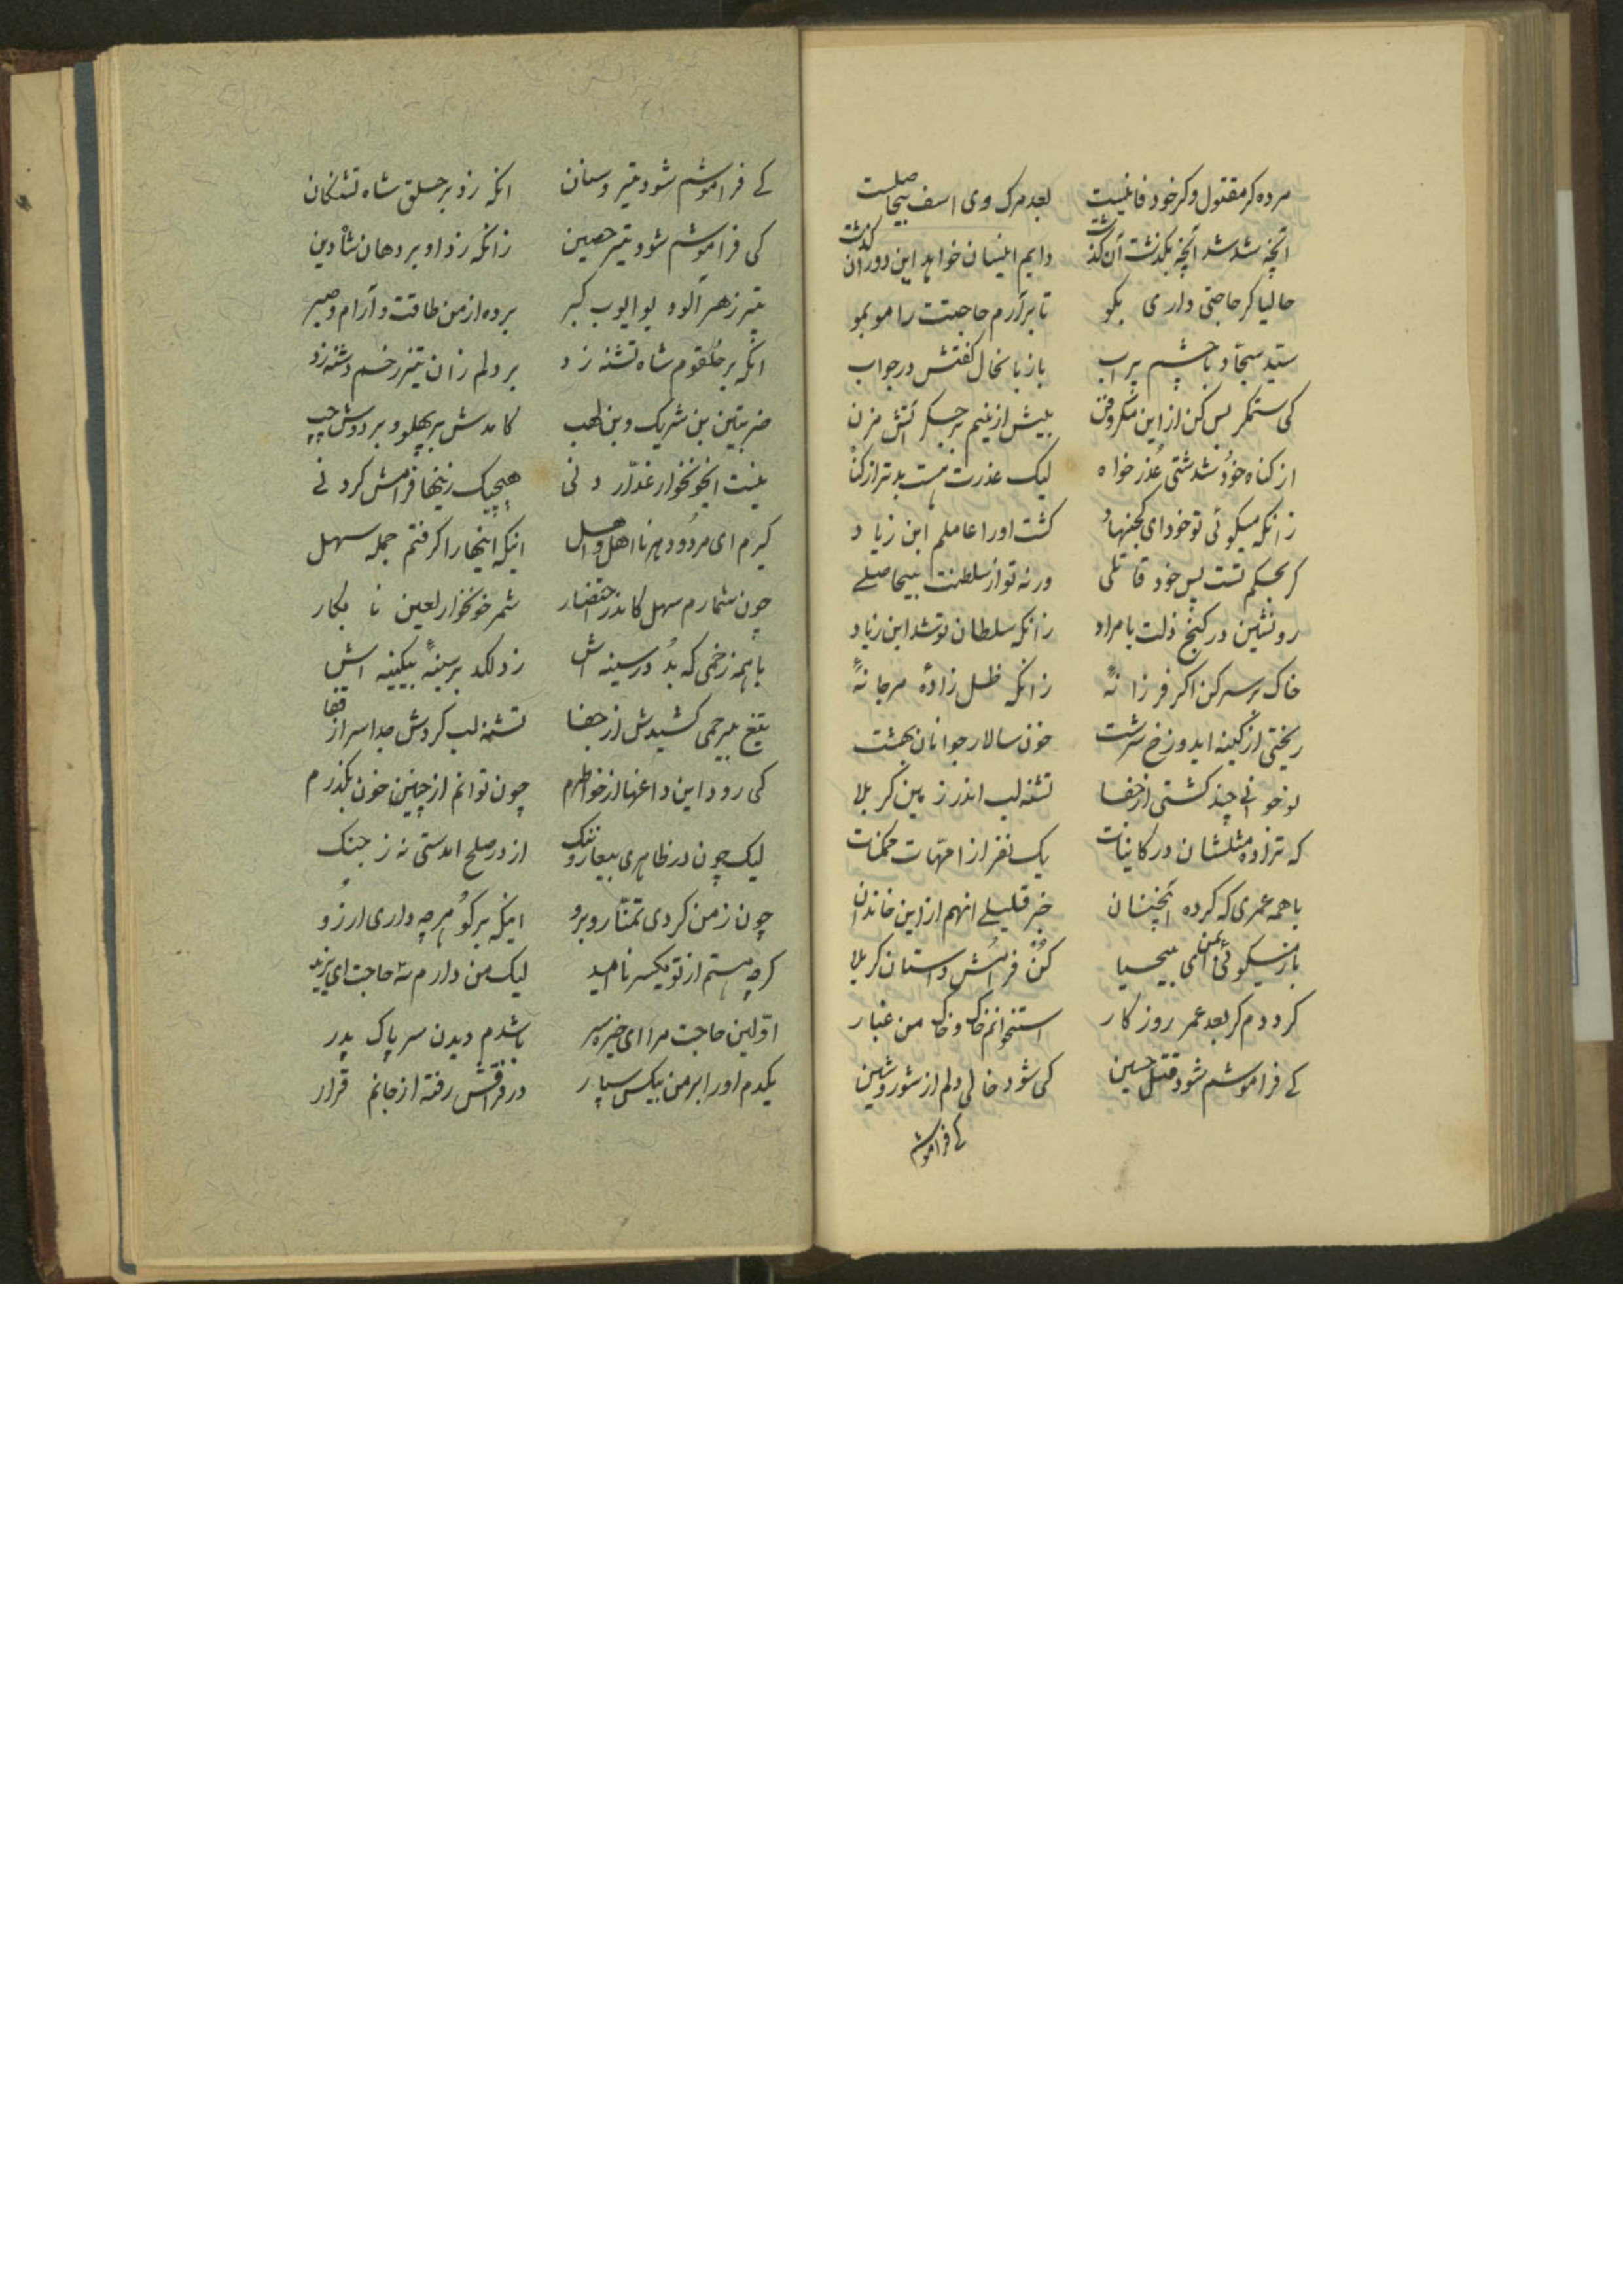 مرده کر مقتول وکر خود فانیست بعد مرک وی اسف بیحاصلست
آنچه شد شد آنچه بکذشت آن کذشت دایم اینسان خواهد این دوران کذشت
حالیا کر حاجتی داری بکو تا برآرم حاجتت را مو بمو
سیّد سجّاد با چشم پر آب باز با نخال کفتش در جواب
کی ستمکر بس کن از این مکر وفن بیش از اینم بر جکر آتش مزن
از کناه خود شدستی عذر خواه لیک عذرت هست بدتر از کناه
زانکه میکوئی تو خود ای کجنهاد کشت او را عاملم ابن زیاد
کر بحکم تست پس خود قاتلی ورنه تو از سلطنت بیحاصلے
رو نشین در کنج ذلت با مراد زانکه سلطان تو شد ابن زیاد
خاک بر سر کن اکر فرزانهٔ زانکه ظل زادهٔ مرجانهٔ
ریختی از کینه ایدوزخ سرشت خون سالار جوانان بهشت
نوخوانے چند کشتی از جفا تشنه لب اندر زمین کربلا
که نزاده مثلشان در کاینات یک نفر از امّهات ممکنات
با همه عمری که کرده آنچنان جز قلیلے آنهم از این خاندان
باز میکوئی بمن ای بیحیا کن فرامش داستان کربلا
کردم کر بعد عمر روزکار استخوانم خاک و خاک من غبار
کے فراموشم شود قتل حسین کی شود خالی دلم از شور وشین
کے فراموشم
کے فراموشم شود تیر وسنان انکه زد بر حلق شاه تشنکان
کی فراموشم شود تیر حصین زانکه زد او بر دهان شاه دین
تیر زهر آلود بو ایوب کبر برده از من طاقت و آرام وصبر
انکه بر حلقوم شاه تشنه زد بر دلم زان تیر زخم دشنه زد
ضربتین بن شریک وبن لهب کامدش بر پهلو و بر دوش چپ
نیست ایخونخوار غدّار دنی هیچیک زینها فرامش کردنے
کیرم ای مردود هر نا اهل واهل اینکه اینها را کرفتم جمله سهل
چون شمارم سهل کاندر احتضار شمر خونخوار لعین نابکار
با همه زخمی که بُد در سینه اش زد لکد بر سینهٔ بیکینه اش
تیغ بیرحمی کشیدش از جفا تشنه لب کردش جدا سر از قفا
کی رود این داغها از خواطرم چون توانم از چنین خون بکذرم
لیک چون در ظاهری بیعار وننک از در صلح امدستی نه ز جنک
چون ز من کردی تمنّا روبرو اینکه برکو هرچه داری ارزو
کرچه هستم از تو یکسر ناامید لیک من دارم سه حاجت ای یزید
اوّلین حاجت مرا ای خیره سر باشدم دیدن سر پاک پدر
یکدم او را بر من بیکس سپار در فراقش رفته از جانم قرار